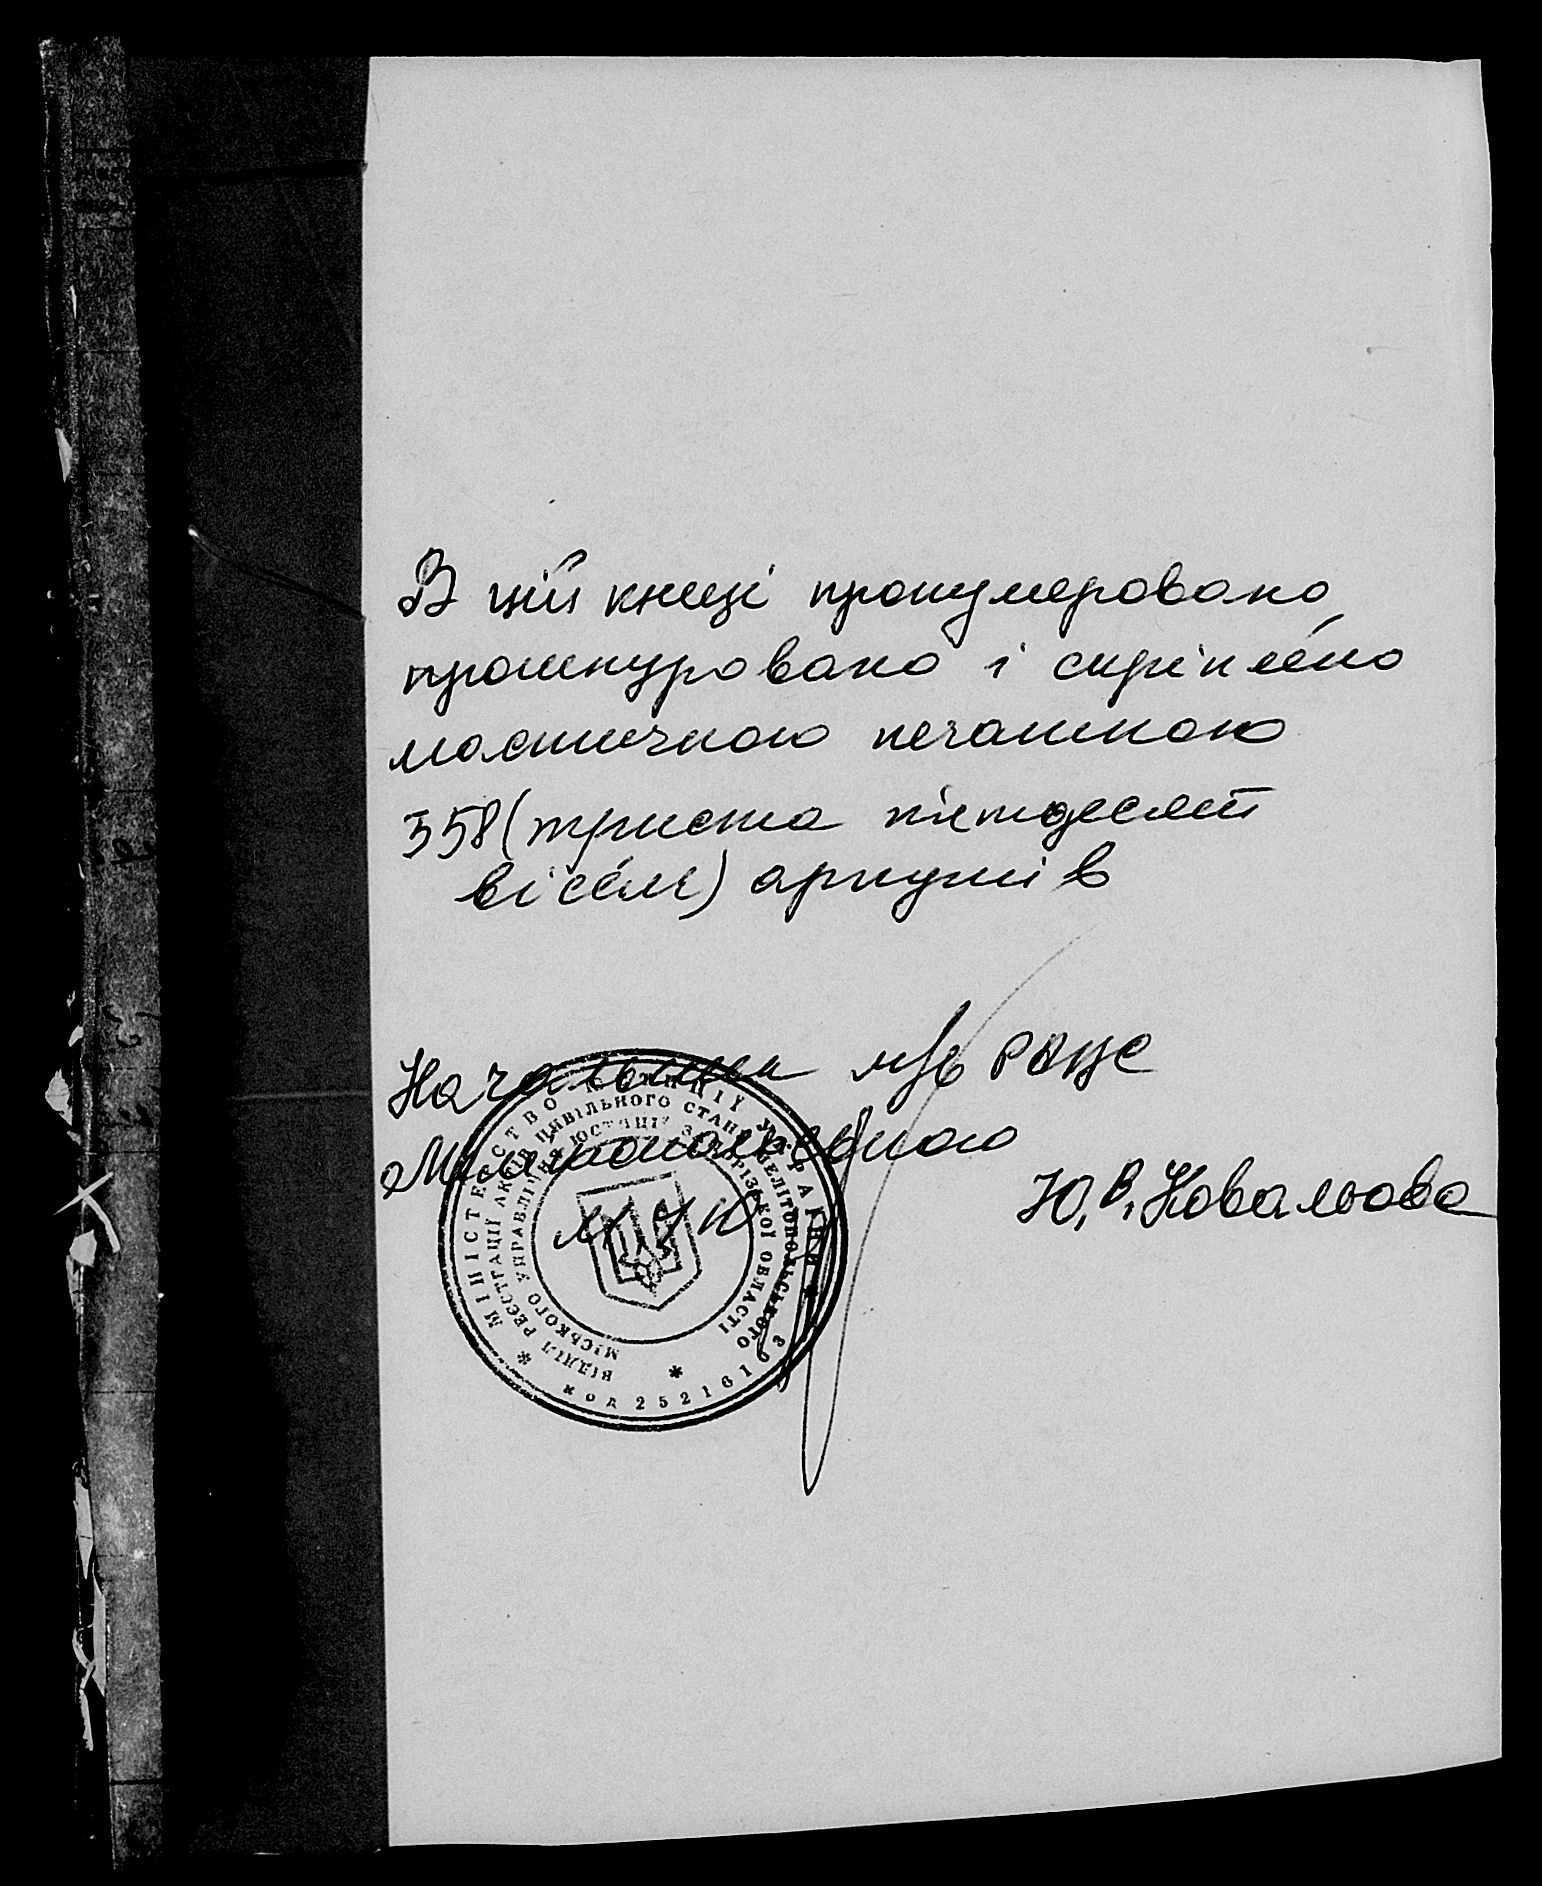 В цій книзі пронумеровано,
прошнуровано і скріплено
мастичною печаткою
358 (триста п'ятдесят
вісім) аркушів
Начальник м/в РАЦС
Мелітопольського
МУЮ
Ю.В. Ковальова
МІНІСТЕРСТВО ЮСТИЦІЇ УКРАЇНИ
ВІДДІЛ РЕЄСТРАЦІЇ АКТІВ ЦИВІЛЬНОГО СТАНУ МЕЛІТОПОЛЬСЬКОГО
МІСЬКОГО УПРАВЛІННЯ ЮСТИЦІЇ ЗАПОРІЗЬКОЇ ОБЛАСТІ
код 25216103